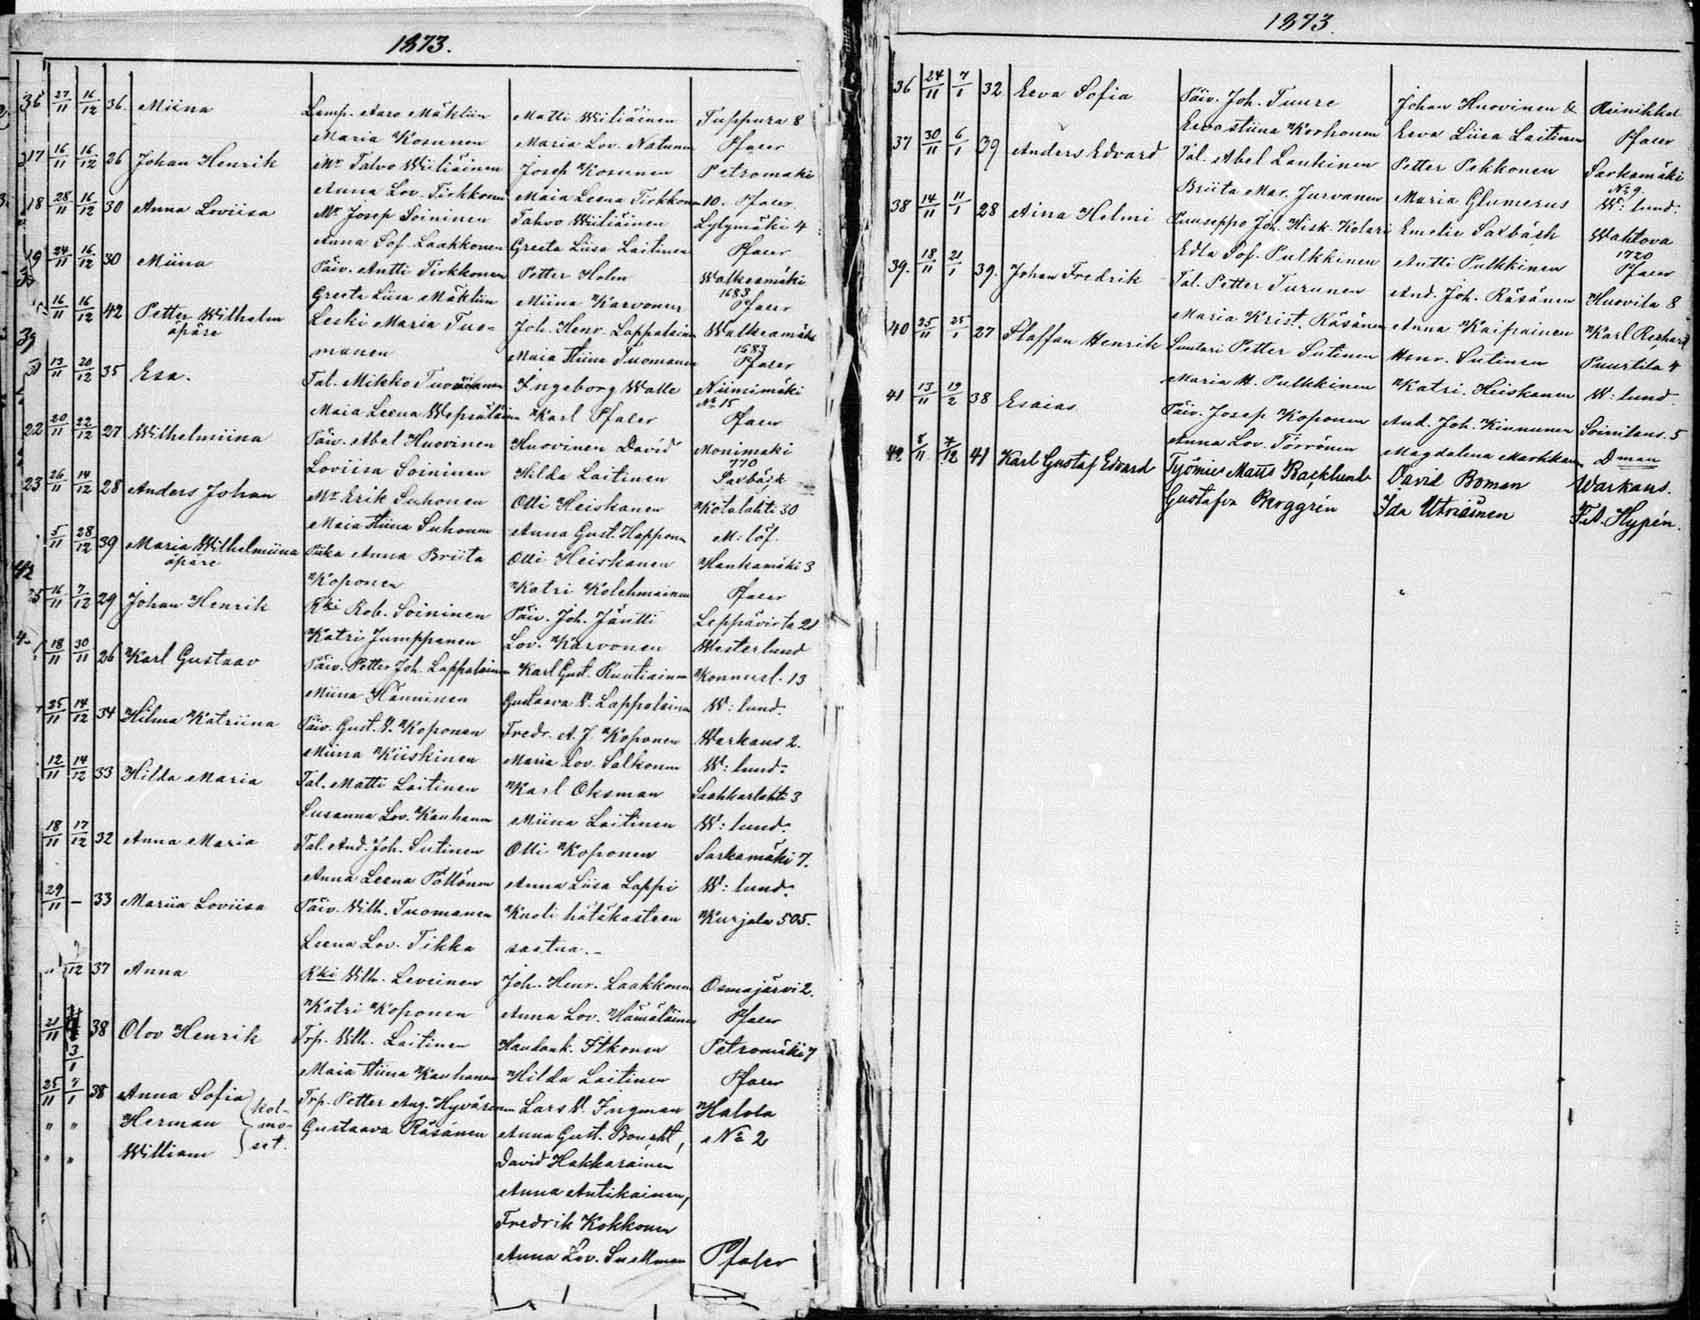 1873.
36 27/11 16/12 36 Miina Lamp. Aaro Mäklin Matti Wiiliäinen Tuppura 8
Maria Kosunen Maria Lov. Natunen Pfaler
17 16/11 16/12 26 Johan Henrik Mr Tahvo Wiiliäinen Josep Kosunen Petromäki
Anna Lov. Tirkkonen Maia Leena Tirkkonen 10. Pfaler.
18 28/11 16/12 30 Anna Loviisa Mr Josep Soininen Tahvo Wiiliäinen Lylymäki 4
Anna Sof. Laakkonen Greeta Liisa Laitinen Pfaler
19 24/11 16/12 30 Miina Päiv. Antti Tirkkonen Petter Holm Walkeamäki
1683
Greeta Liisa Mäklin Miina Karvonen Pfaler
16/11 16/12 42 Petter Wilhelm Leski Maria Tuo- Joh. Henr. Lappalainen Walkeamäki
äpäre 1683
39 manen Maia Stiina Tuomanen Pfaler
13/11 20/12 35 Esa. Tal. Mikko Tuomanen Ingeborg Walle Niinimäki
No 15
Maia Leena Wepsäläinen Karl Pfaler Pfaler
22 20/11 22/12 27 Wilhelmiina Päiv. Abel Huovinen Huovinen David Monimäki
770
Loviisa Soininen Hilda Laitinen Saxbäck
23 26/11 14/12 28 Anders Johan Mr Erik Suhonen Olli Heiskanen Kotalahti 30
Maia Stiina Suhonen Anna Gust. Happonen M: löf.
5/11 28/12 39 Maria Wilhelmiina Piika Anna Briita Olli Heiskanen Hankamäki 3
äpäre
Koponen Katri Kolehmainen Pfaler
25 16/11 7/12 29 Johan Henrik Kki Rob. Soininen Päiv. Joh. Jäntti Leppävirta 21
Katri Jumppanen Lov. Karvonen Westerlund
18/11 30/11 26 Karl Gustaav Päiv. Petter Joh. Lappalainen Karl Gust. Runtiainen Konnusl. 13
Miina Hänninen Gustaava W. Lappalainen W: lund.
25/11 14/12 34 Hilma Katriina Päiv. Gust. V. Koponen Fredr. A. J. Koponen Warkaus 2.
Miina Kiiskinen Maria Lov. Salkonen W: lund:
12/11 14/12 33 Hilda Maria Tal. Matti Laitinen Karl Oksman Saahkarlahti 3
Susanna Lov. Kauhanen Miina Laitinen W: lund:
18/11 17/12 32 Anna Maria Tal. And. Joh. Sutinen Olli Koponen Sarkamäki 7.
Anna Leena Pöllönen Anna Liisa Lappi W: lund:
29/11 — 33 Mariia Loviisa Päiv. Wilh. Tuomanen Kuoli hätäkasteen Kurjala 505.
Leena Lov. Tikka saatua. -
37 Anna Kki Wilh. Leveinen Joh. Henr. Laakkonen Osmajärvi 2.
Katri Koponen Anna Lov. Hämäläinen Pfaler
21/11 3/1 38 Olov Henrik Trp. Wilh. Laitinen Itkonen Petromäki 7
Maia Stiina Kauhanen Hilda Laitinen Pfaler
25/11 7/1 38 Anna Sofia kol- Trp. Petter Aug. Hyvärinen Lars W. Ingman Halola
" " Herman mo- Gustaava Räsänen Anna Gust. No 2
" " William set.
David Hakkarainen
Anna Antikainen,
Fredrik Kokkonen
Anna Lov. Pfaler
1873.
36 24/11 7/1 32 Eeva Sofia Päiv. Joh. Tuure Johan Huovinen &
Eevastiina Korhonen Eeva Liisa Laitinen Pfaler
37 30/11 6/1 39 Anders Edvard Tal. Abel Laukinen Petter Pekkonen Sarkamäki
No 9.
Briita Mar. Jurvonen Maria Glumerus W: lund.
38 14/11 11/1 28 Aina Helmi Puuseppo Joh. Hisk. Kolari Emelie Saxbäck Wahtova
1720
Edla Sof. Pulkkinen Antti Pulkkinen Pfaler
39. 18/11 21/1 39. Johan Fredrik Tal. Petter Turunen And. Joh. Räsänen Huovila 8
Maria Krist. Räsänen Anna Kaipainen Karl Rechard
40 25/11 25/1 27 Staffan Henrik Suutari Petter Sutinen Henr. Sutinen Puurtila 4
Maria H. Pulkkinen Katri. Heiskanen W: lund.
41 13/11 19/2 38 Esaias Päiv. Josep Koponen And. Joh. Kinnunen Soinilans. 5
Anna Lov. Törrönen Magdalena Markkanen Dman
42 8/11 7/12 41 Karl Gustaf Edvard Työmies Matts Backlund David Boman Warkaus.
Gustafva Berggrén Ida Utriainen F. A. Hypén.